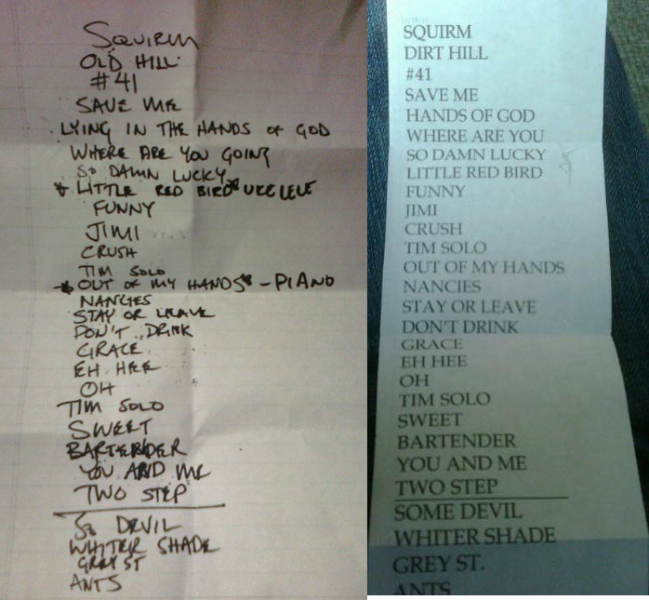 SQUIRM
OLD HILL
#41
SAVE ME
LYING IN THE HANDS OF GOD
WHERE ARE YOU GOING
SO DAMN LUCKY
* LITTLE RED BIRD* UKELELE
FUNNY
JIMI
CRUSH
TIM SOLO
* OUT OF MY HANDS* - PIANO
NANCIES
STAY OR LEAVE
DON'T DRINK
GRACE
EH HEE
OH
TIM SOLO
SWEET
BARTENDER
YOU AND ME
TWO STEP
So DEVIL
WHITER SHADE
GREY ST
ANTS
SQUIRM
DIRT HILL
#41
SAVE ME
HANDS OF GOD
WHERE ARE YOU
SO DAMN LUCKY
LITTLE RED BIRD
FUNNY
JIMI
CRUSH
TIM SOLO
OUT OF MY HANDS
NANCIES
STAY OR LEAVE
DON'T DRINK
GRACE
EH HEE
OH
TIM SOLO
SWEET
BARTENDER
YOU AND ME
TWO STEP
SOME DEVIL
WHITER SHADE
GREY ST.
ANTS